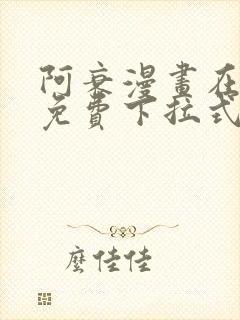 阿衰漫畫在
免費下拉式
麼佳佳